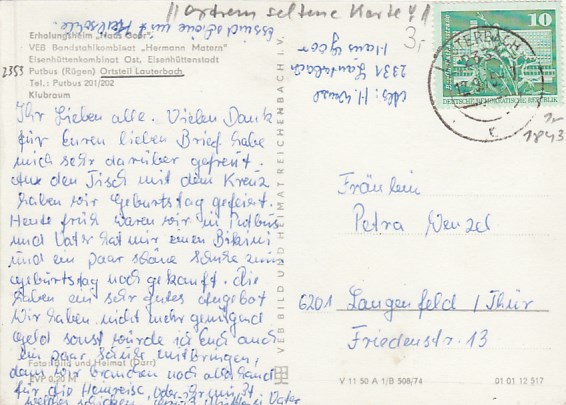 "extrem seltene Karte"!!
3,-
Erholungsheim „Haus Goor"
VEB Bandstahlkombinat „Hermann Matern"
Eisenhüttenkombinat Ost, Eisenhüttenstadt
2353 Putbus (Rügen) Ortsteil Lauterbach
Tel.: Putbus 201/202
Klubraum
Ihr Lieben alle. Vielen Dank
für Euren lieben Brief habe
mich sehr darüber gefreut.
An den Tisch mit dem Kreuz
haben wir Geburtstag gefeiert.
Heute früh waren wir in Putbus
und Vater hat mir einen Bikini
und ein paar schöne Schuhe zum
Geburtstag noch gekauft. Die
haben ein sehr gutes Angebot
Wir haben nicht mehr genügend
Geld sonst würde ich Euch auch
ein paar Schuhe mitbringen,
denn wir brauchen noch allerhand
für die Heimreise,
Vater
Foto: Bild und Heimat (Darr)
EVP 0,20 M
VEB BILD UND HEIMAT REICHENBACH I. V.
Abs. H.
2331 Lauterbach
Haus Goor
10
DEUTSCHE DEMOKRATISCHE REPUBLIK
LAUTERBACH
1843
Fräulein
Petra Wenzel
6201 Langenfeld / Thür
Friedenstr. 13
V 11 50 A 1/B 508/74
01 01 12 517